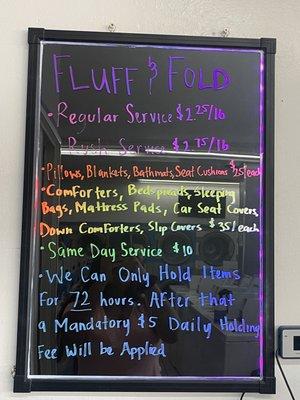 FLUFF & FOLD
• Regular Service $2.25/lb
Rush Service $2.75/lb
• Pillows, Blankets, Bathmats, Seat Cushions $25/each
• Comforters, Bedspreads, Sleeping
Bags, Mattress Pads, Car Seat Covers,
Down Comforters, Slip Covers $35/each
• Same Day Service $10
• We Can Only Hold Items
For 72 hours. After that
a Mandatory $5 Daily Holding
Fee Will be Applied